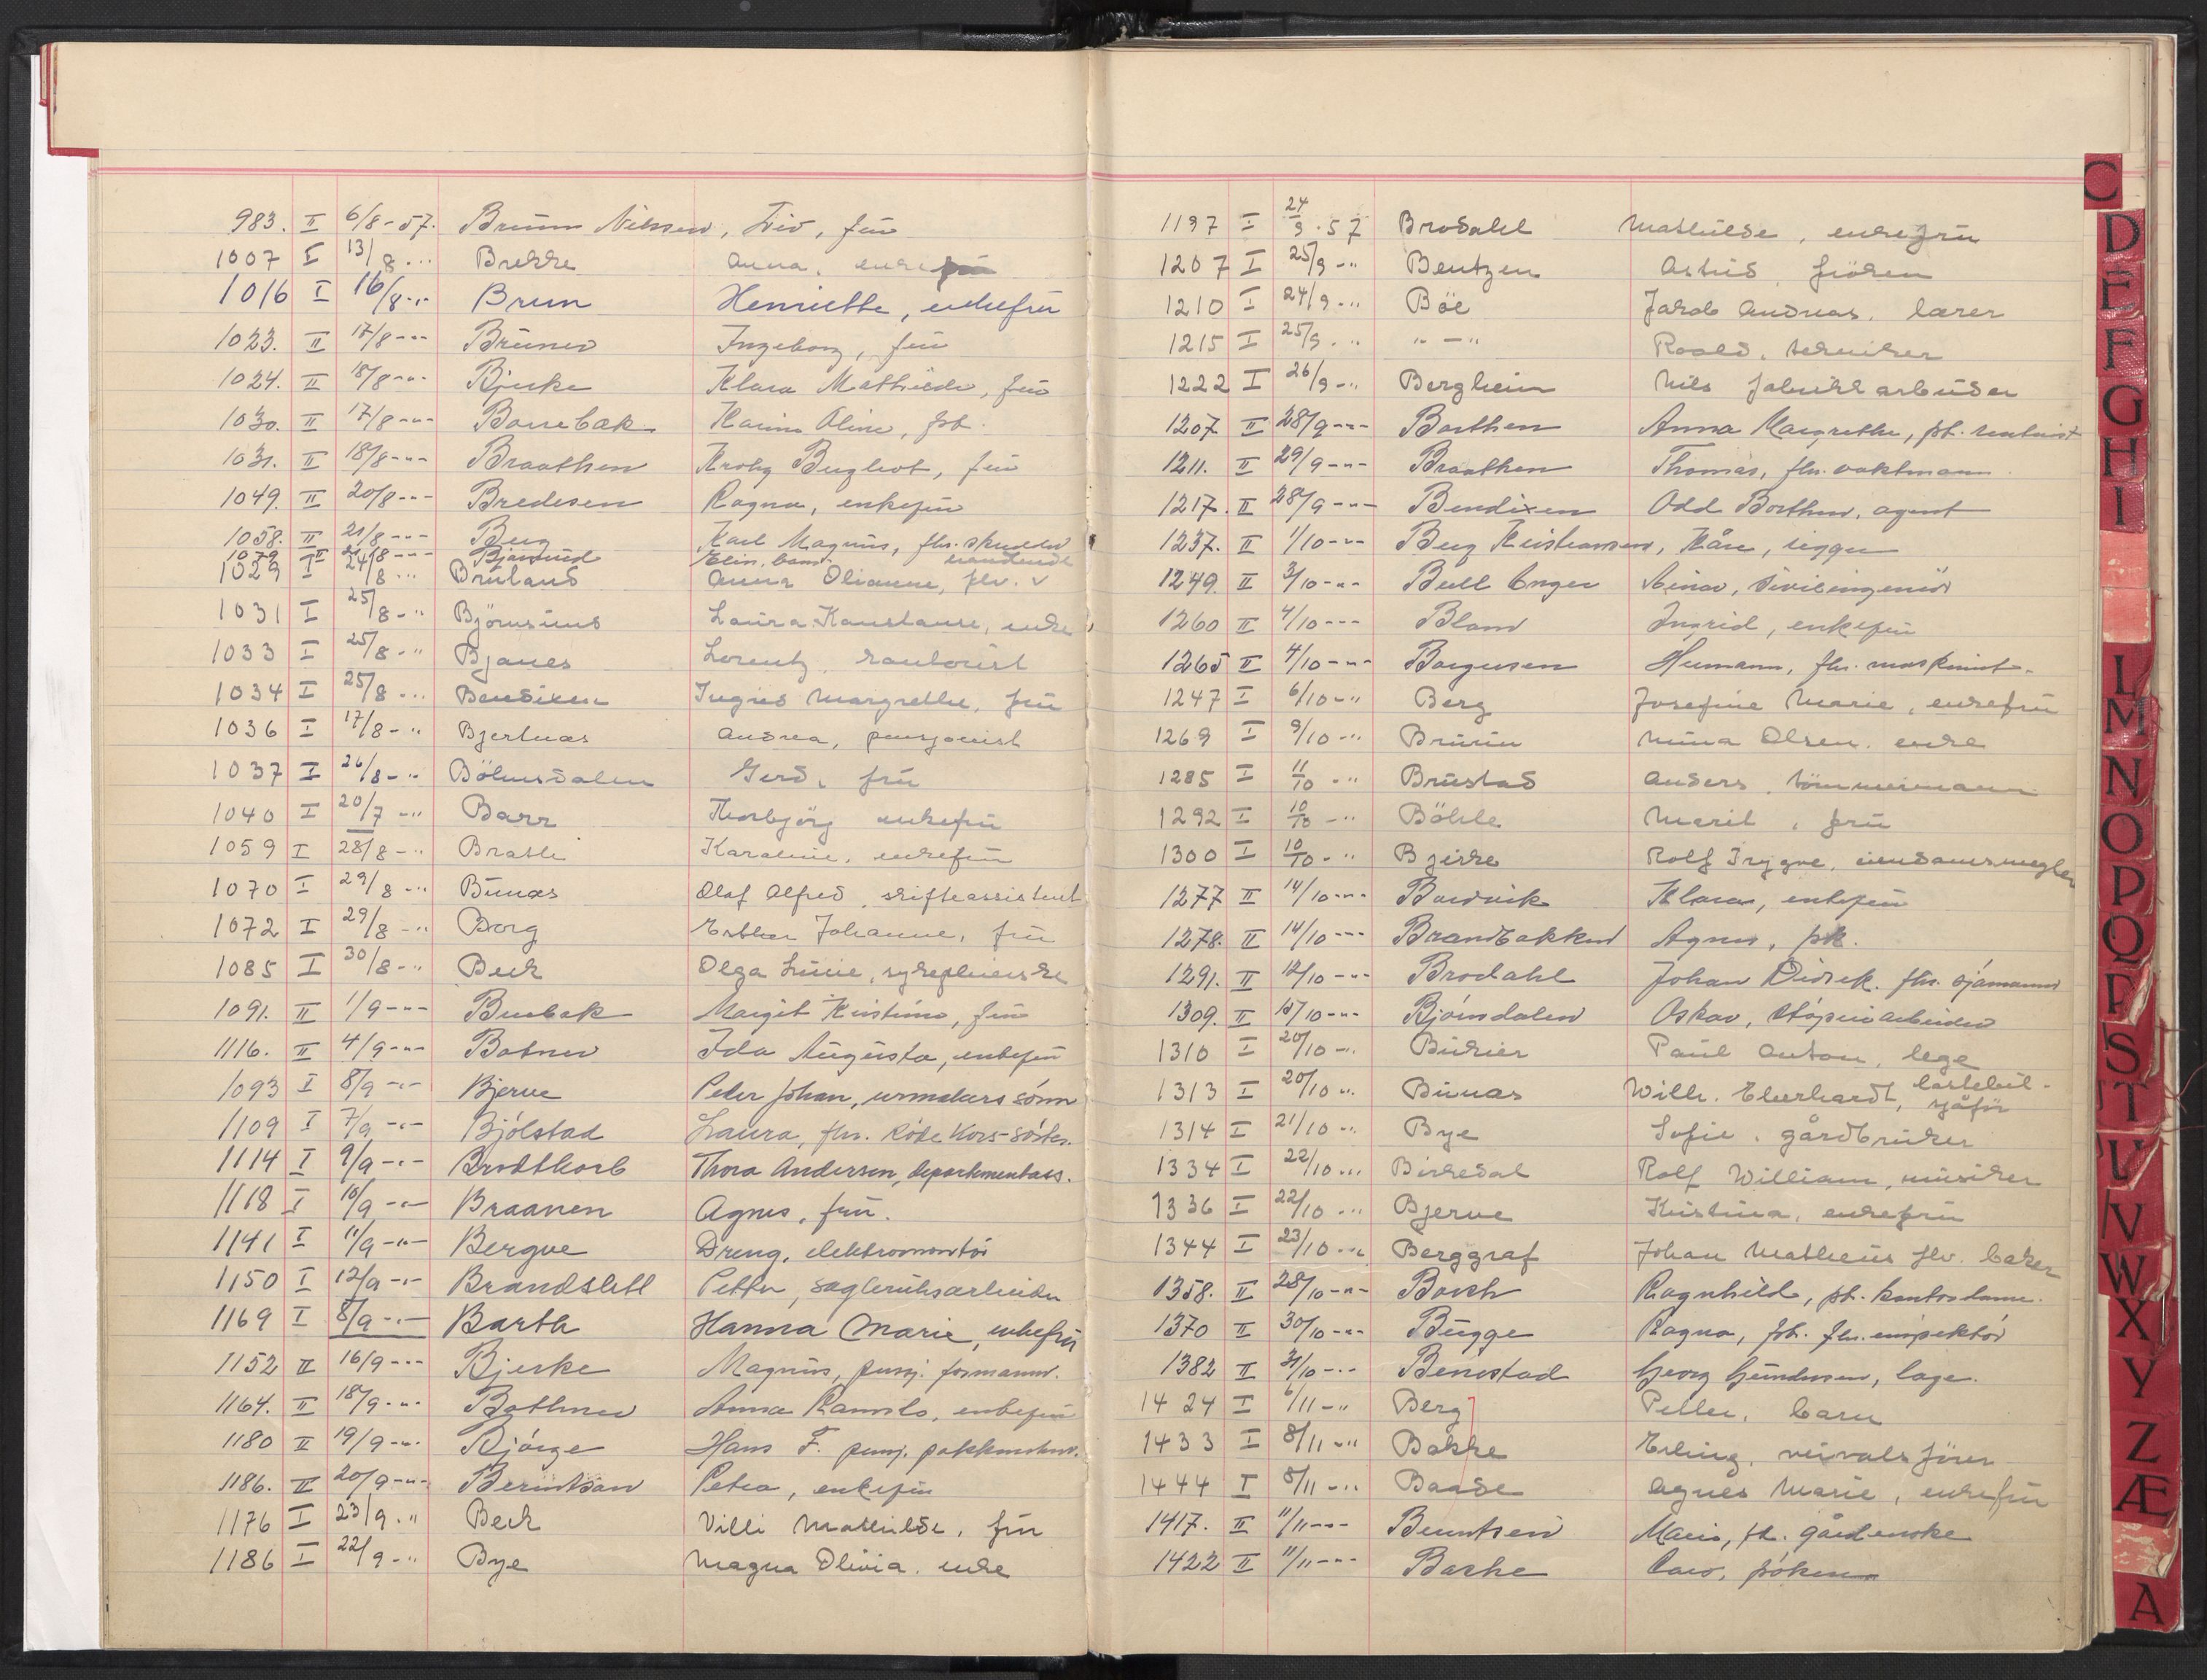 983. II 6/8-57. Bruun Nilssen, Liv, frú
1007 I 13/8 -.. Brekke Anna, enkefrú
1016 I 16/8-.- Brun Henriette, enkefrú
1023. II 17/8 -"- Ingeborg, frú
1024. II 18/8 -"- Bjerke Klara Mathilde, frú
1030. II 17/8 -"- Borrebæk Karine Oline, frk.
1031. II 18/8 -"- Braathen Borghot, frú
1049. II 20/8 -"- Bredesen Ragna, enkefrú
1058. II 21/8 -"- Berg Karl Magnus, fhv. skredder
1079 II 21/8 -"- Bjørnrud Elin, barn
1029 I 24/8 -.. Brúland Anna Olianne, flv. v
1031 I 25/8 -" Björnsund Laura Konstanse, enke
1033 I 25/8 -" Bjanes Lorentz
1034 I 25/8 -.. Bendixen Ingrid Margrethe, frú
1036 I 17/8 -" Bjertnæs Andrea, pensjonist
1037 I 26/8 -" Böhmsdalen Gerd, frú
1040 I 20/7 -" Barr Thorbjörg enkefrú
1059 I 28/8 -" Bratli Karoline, enkefrú
1070 I 29/8 -.. Bunæs Olaf Alfred, skifteassistent
1072 I 29/8 -" Borg Esther Johanne, frú
1085 I 30/8 -" Beck Olga Luvie, sykepleierske
1091. II 1/9 -"- Margit Kristine, frú
1116. II 4/9 -"- Botner Ida Augústa, enkefrú
1093 I 8/9 -"- Bjerve Peder Johan, urmakerssønn
1109 I 7/9 -"- Bjølstad Laura, fhv. Røde Kors-søster.
1114 I 9/9 -"- Brodtkorb Thora Andersen, departmentass.
1118 I 10/9 -"- Braanen Agnes, frú.
1141 I 11/9 -"- Bergve Dreng, elektromontör
1150 I 12/9 -"- Brandslett Petter, sagbruksarbeider
1169 I 8/9 -"- Barth Hanna Marie, enkefrú
1152 II 16/9 -"- Bjerke Magnus, pensj. formann.
1164. II 18/9 -"- Bothner Anna, enkefrú
1180 II 19/9 -"- Bjørge Hans F. pensj. pakkmester.
1186. II 20/9 -"- Berintsan Petra, enkefrú
1176 I 23/9 ." Beck Villi Mathilde, frú
1186 I 22/9 -" Bye Magna Olivia. enke
1197 I 24/9 . 57 Brodahl Mathilde, enkefrú
1207 I 25/9 -" Bentzen Astrid, fröken
1210 I 24/9 -" Böe Jakob Andreas, lærer
1215 I 25/9 . " " - " Roald, tekniker
1222 I 26/9 -" Bergheim Nils fabrikkarbeider
1207 II 28/9 -"- Borthen Anna Margrethe, frk.
1211. II 29/9 -"- Braathen Thomas, fhv. vaktmann.
1217. II 28/9 -"- Bendixen Odd Borthen, agent
1237. II 1/10 -"- Berg Kristiansen, Kåre, rigger
1249. II 3/10 -"- Bull Enger Einar, sivilingeniør
1260 II 4/10 -"- Blom Ingrid, enkefrú
1265 II 4/10 -"- Borgersen Herman, fhv. maskinist.
1247 I 6/10 -" Berg Josefine Marie, enkefrú
1269 I 9/10 -" Bruun Nina Olsen. enke
1285 I 11/10 -" Brústad Anders, tömmermann
1292 I 10/10 -" Böhle Marit, frú
1300 I 10/10 -" Bjerke Rolf Trygve, eiendomsmegler
1277 II 14/10 -"- Bardvik Klara, enkefrú
1278. II 14/10 -"- Brandbakken Agnes, frk.
1291. II 12/10 -"- Brodahl Johan Didrik. fhv. sjømann
1309. II 18/10 -"- Bjørndalen Oskar, støperiarbeider
1310 I 20/10 -. Paul Anton, lege
1313 I 20/10 ". Búnæs Wilh. Eberhardt, lastebil-
sjåfør
1314 I 21/10 ". Bye Sofie, gårdbrúker
1334 I 22/10 ... Birkedal Rolf William, músiker
1336 I 22/10 ... Bjerve Kristina, enkefrú
1344 I 23/10 -" Berggraf Johan Matheus flv. baker
1358. II 28/10 -"- Borch Ragnhild, frk. kontordame.
1370 II 30/10 -"- Búgge Ragna, frk. fhv. inspektør
1382 II 31/10 -"- Benestad Georg Gúndersen, lege.
1424 I 6/11 -" Berg Petter, barn
1433 I 8/11 -" Bakke Erling, veivalsförer
1444 I 8/11 -" Baade Agnes Marie, enkefrú
1417. II 11/11 -"- Berntsen Marie, frk. gårdeierske
1422 II 11/11 -"- Bache Caro, frøken
C
D
E
F
G
H
I
L
M
N
O
P
Q
R
S
T
U
V
W
X
Y
Z
Æ
A